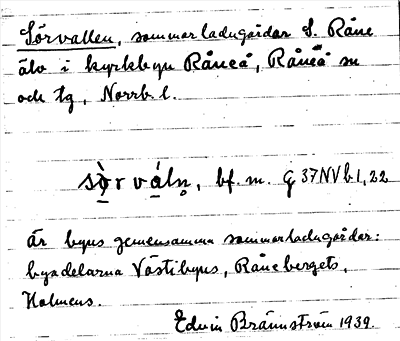 Sörvallen, sommarladugårdar S. Råne
älv i kyrkbyn Råneå, Råneå sn
och tg, Norrb. l.
sòrváln̥, bf. m. G 37NVb1,22
är byns gemensamma sommarladugårdar:
bydelarna Västibyns, Rånebergets,
Holmens.
Edvin Brännström 1939.